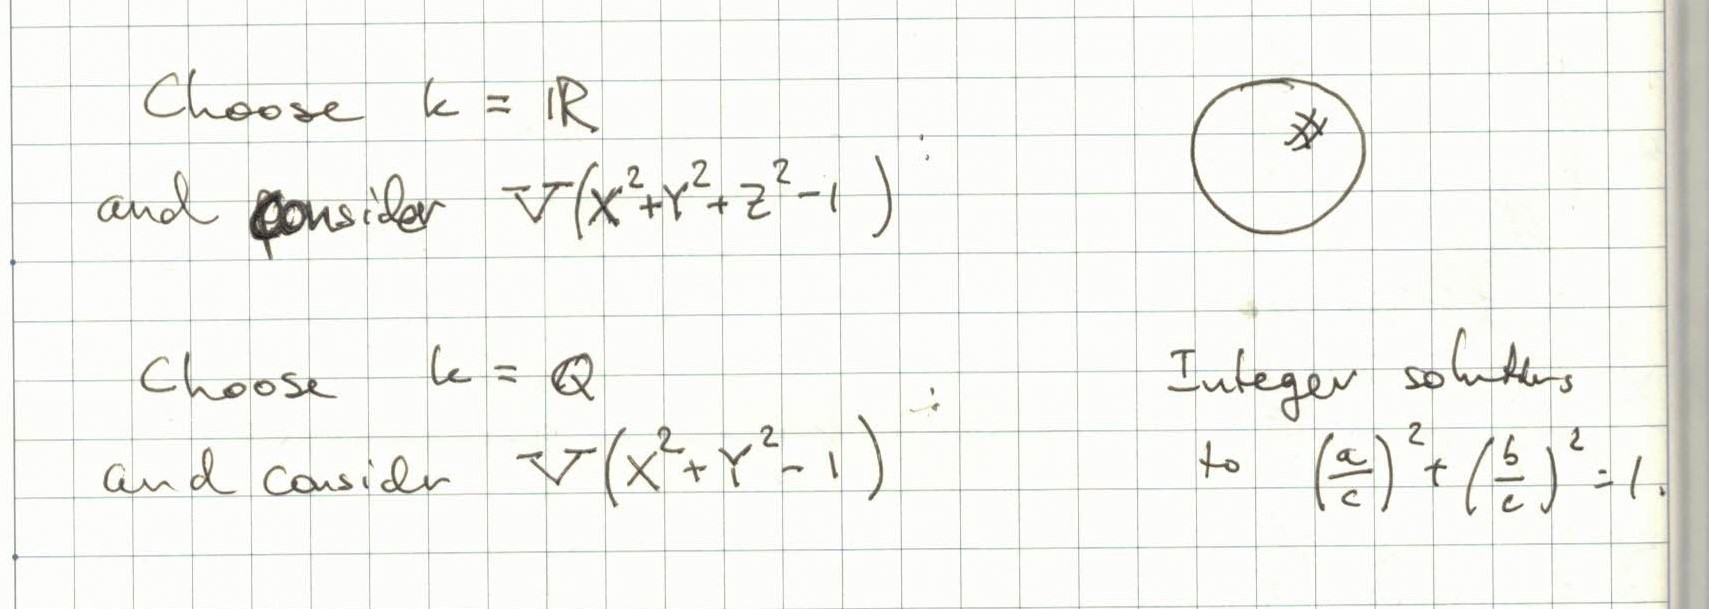 Choose k = ℝ
and consider V(X²+Y²+Z²-1) :
Choose k = Q
and consider V(X²+Y²-1) :
Integer solutions
to (a/c)² + (b/c)² = 1.